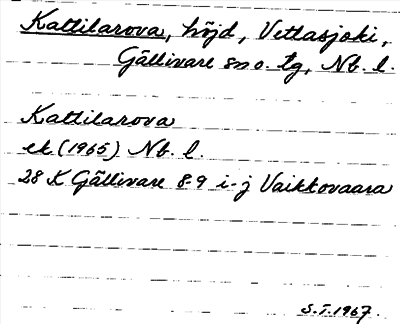 Kattilarova, höjd, Vettasjoki,
Gällivare sn o. tg, Nb. l.
Kattilarova
ek (1965) Nb. l.
28 K Gällivare 8-9 i-j Vaikkovaara
S.I. 1967.